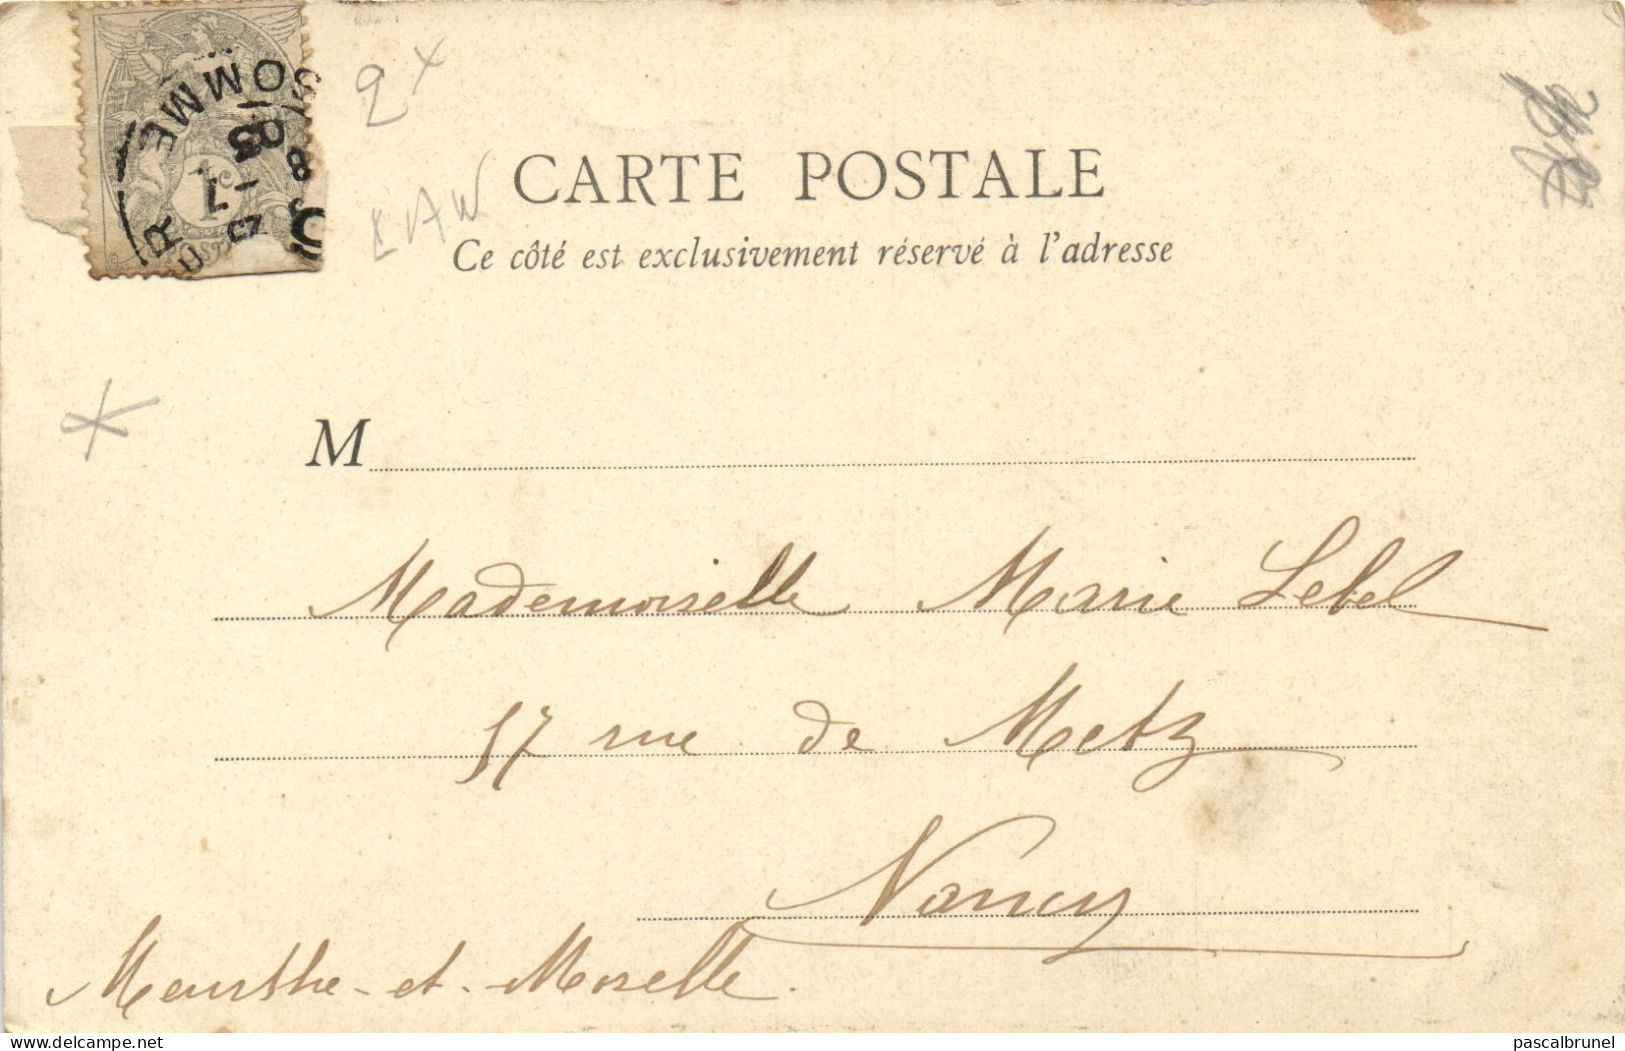 SOMME
1c
CARTE POSTALE
Ce côté est exclusivement réservé à l'adresse
M
Mademoiselle Marie Lebel
57 rue de Metz
Nancy
Meurthe-et-Moselle.
delcampe.net
pascalbrunel